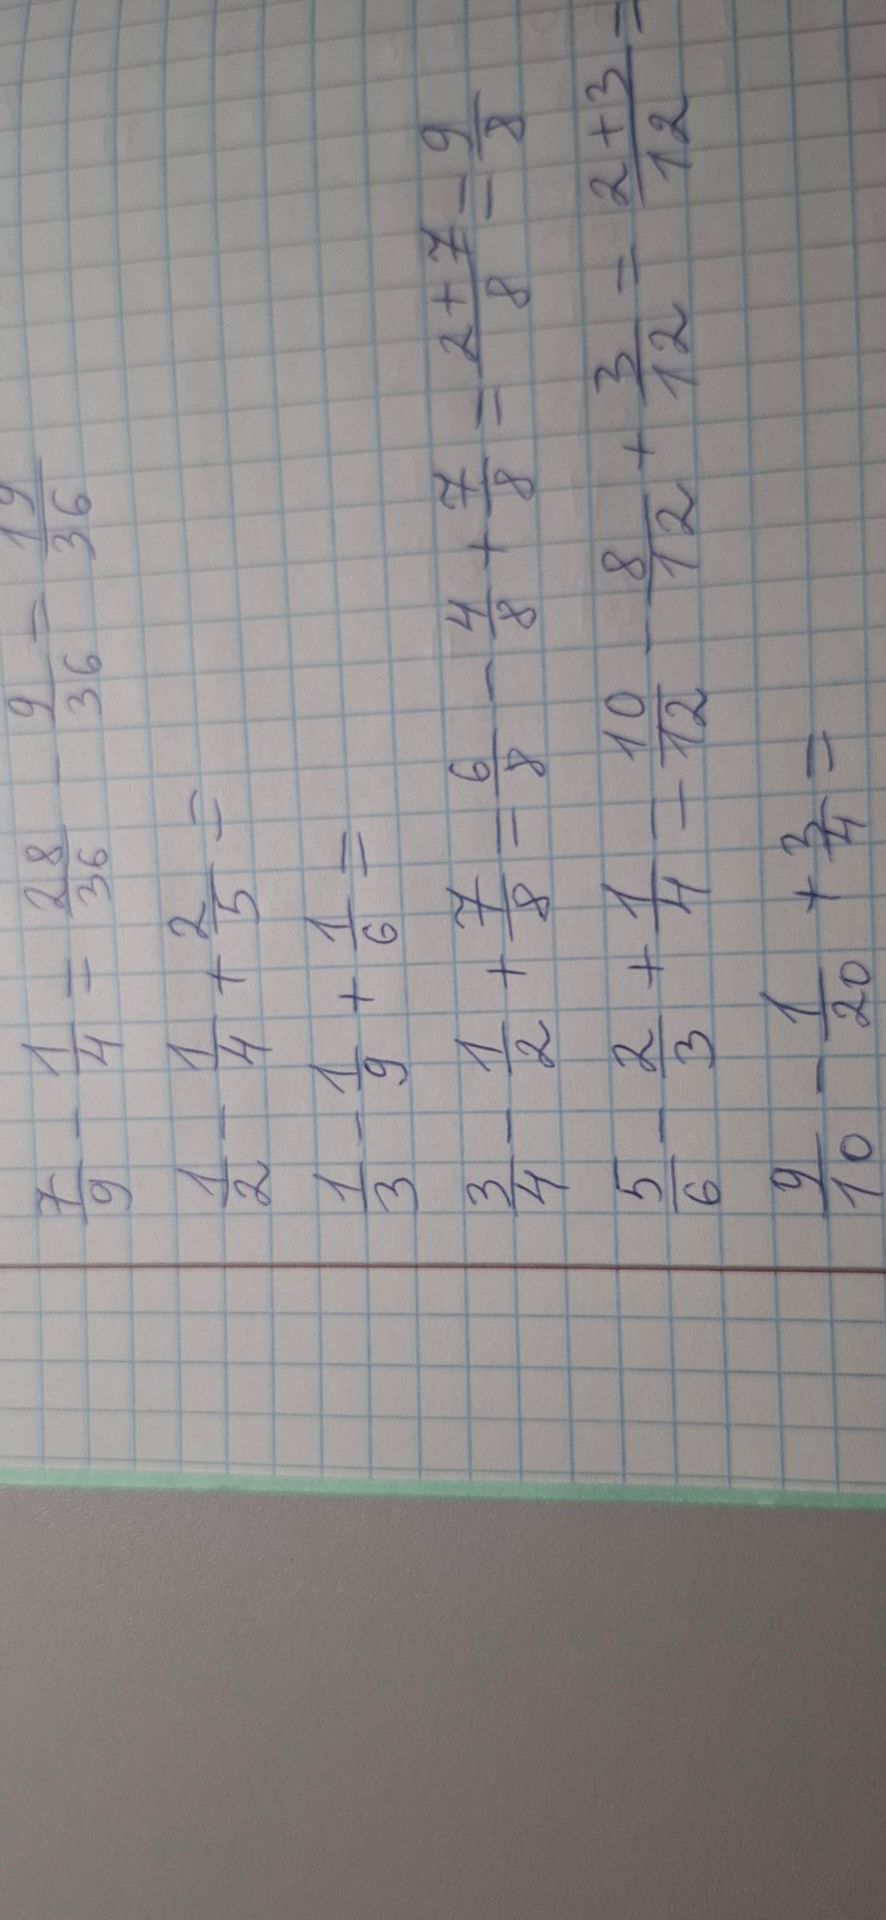 7/9 - 1/4 = 28/36 - 9/36 = 19/36
1/2 - 1/4 + 2/5 =
1/3 - 1/9 + 1/6 =
3/4 - 1/2 + 7/8 = 6/8 - 4/8 + 7/8 = 2+7/8 = 9/8
5/6 - 2/3 + 1/4 = 10/12 - 8/12 + 3/12 = 2+3/12 =
9/10 - 1/20 + 3/4 =